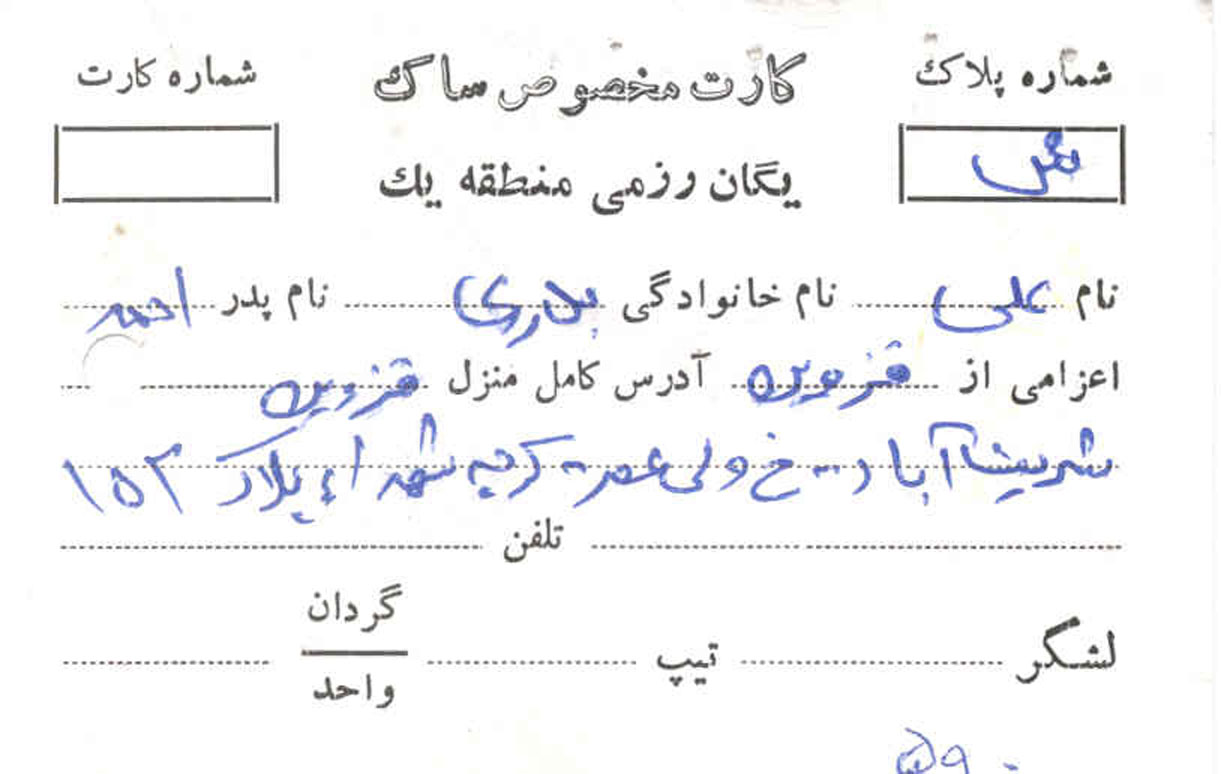 شماره پلاک کارت مخصوص ساک شماره کارت
یگان رزمی منطقه یك
نام علی نام خانوادگی بدری نام پدر احمد
اعزامی از قزوین آدرس کامل منزل قزوین
شریف آباد - خ ولی عصر - کوچه شهداء پلاک ۱۵۳
تلفن
لشگر تیپ گردان
واحد